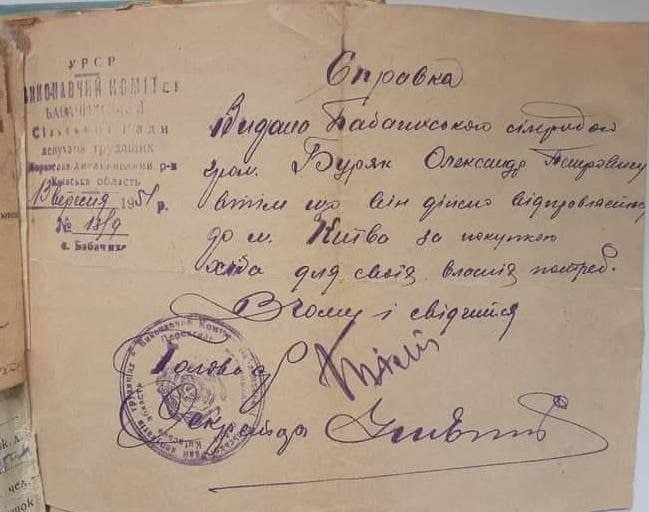 УРСР
ВИКОНАВЧИЙ КОМІТЕТ
Сільської Ради
депутатів трудящих
Переяслав-Хмельницький р-н
Київська область
13 вересня 1951 р.
№ 13/9
с. Бабачиха
Справка
Видано Бабачиською сільрадою
гром. Буряк Олександр Петровичу
втім що він дійсно
до м. Київа за покупкою
хліба для своїх власніх потреб.
Вчому і свідчимся
Голова с/р
Секр с/ради